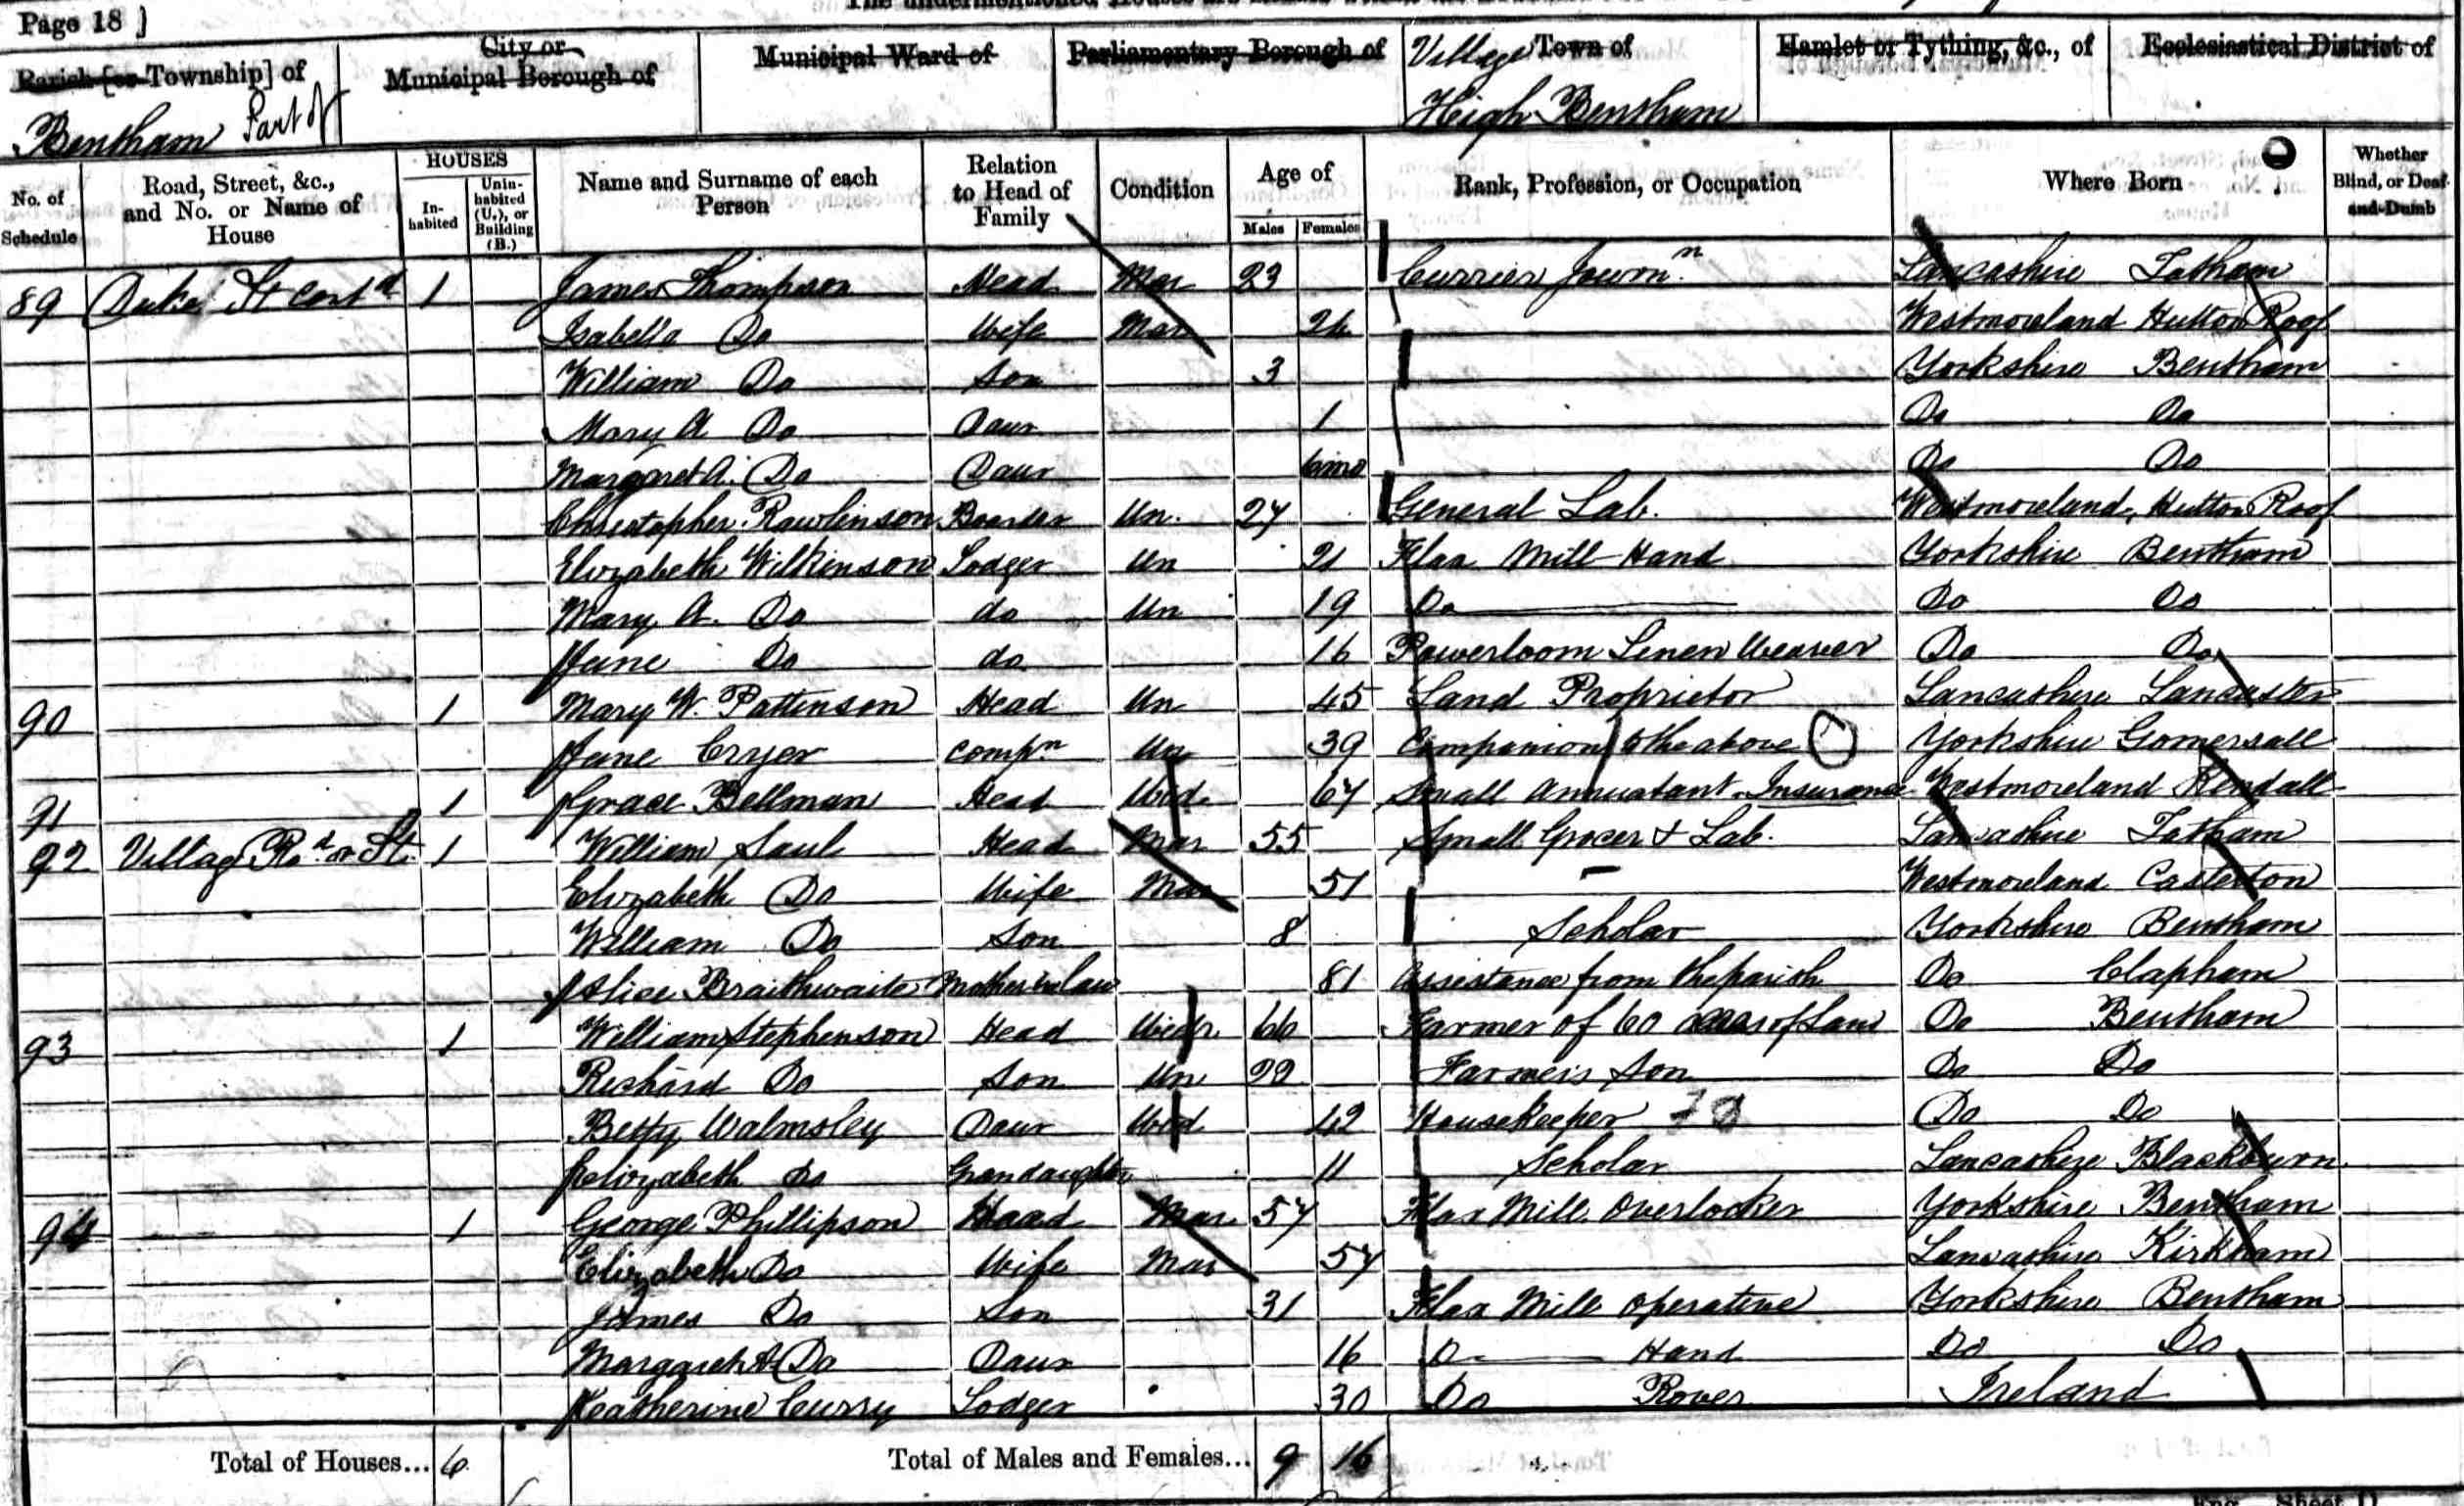 Page 18 ]
Parish [or Township] of
Bentham Part of
City or
Municipal Borough of
Municipal Ward of
Parliamentary Borough of
Village Town of
High Bentham
Hamlet or Tything, &c., of
Ecclesiastical District of
No. of Schedule
Road, Street, &c., and No. or Name of House
HOUSES
Inhabited
Uninhabited (U.), or Building (B.)
Name and Surname of each Person
Relation to Head of Family
Condition
Age of
Males Females
Rank, Profession, or Occupation
Where Born
Whether Blind, or Deaf-and-Dumb
89 Duke St contd 1 James Thompson Head Mar 23 Currier Journn Lancashire Tatham
Isabella Do Wife Mar 26 Westmoreland Hutton Roof
William Do Son 3 Yorkshire Bentham
Mary A Do Daur 1 Do Do
Margaret A. Do Daur 6mo Do Do
Christopher Rawlinson Boarder Un. 27 General Lab. Westmoreland, Hutton Roof
Elizabeth Wilkinson Lodger Un 21 Flax Mill Hand Yorkshire Bentham
Mary A. Do do Un 19 Do Do Do
Jane Do do 16 Powerloom Linen Weaver Do Do
90 1 Mary W. Pattinson Head Un 45 Land Proprietor Lancashire Lancaster
Jane Cryer Compn Un 39 Companion to the above Yorkshire Gomersall
91 1 Grace Bellman Head Wid. 67 Small Annuatant Insurance Westmoreland Kendall
92 Village Rd or St. 1 William Saul Head Mar 55 Small Grocer & Lab. Lancashire Tatham
Elizabeth Do Wife Mar 51 Westmoreland Casterton
William Do Son 8 Scholar Yorkshire Bentham
Alice Braithwaite Mother in Law 81 Assistance from the parish Do Clapham
93 1 William Stephenson Head Widr 66 Farmer of 60 acres of Land Do Bentham
Richard Do Son Un 22 Farmers Son Do Do
Betty Walmsley Daur Wid 42 Housekeeper Do Do
Elizabeth Do Grandaughter 11 Scholar Lancashire Blackburn
94 1 George Phillipson Head Mar 57 Flax Mill Overlooker Yorkshire Bentham
Elizabeth Do Wife Mar 57 Lancashire Kirkham
James Do Son 31 Flax Mill Operative Yorkshire Bentham
Margaret A Do Daur 16 Do Hand Do Do
Keatherine Curry Lodger 30 Do Rover Ireland
Total of Houses... 6
Total of Males and Females... 9 16